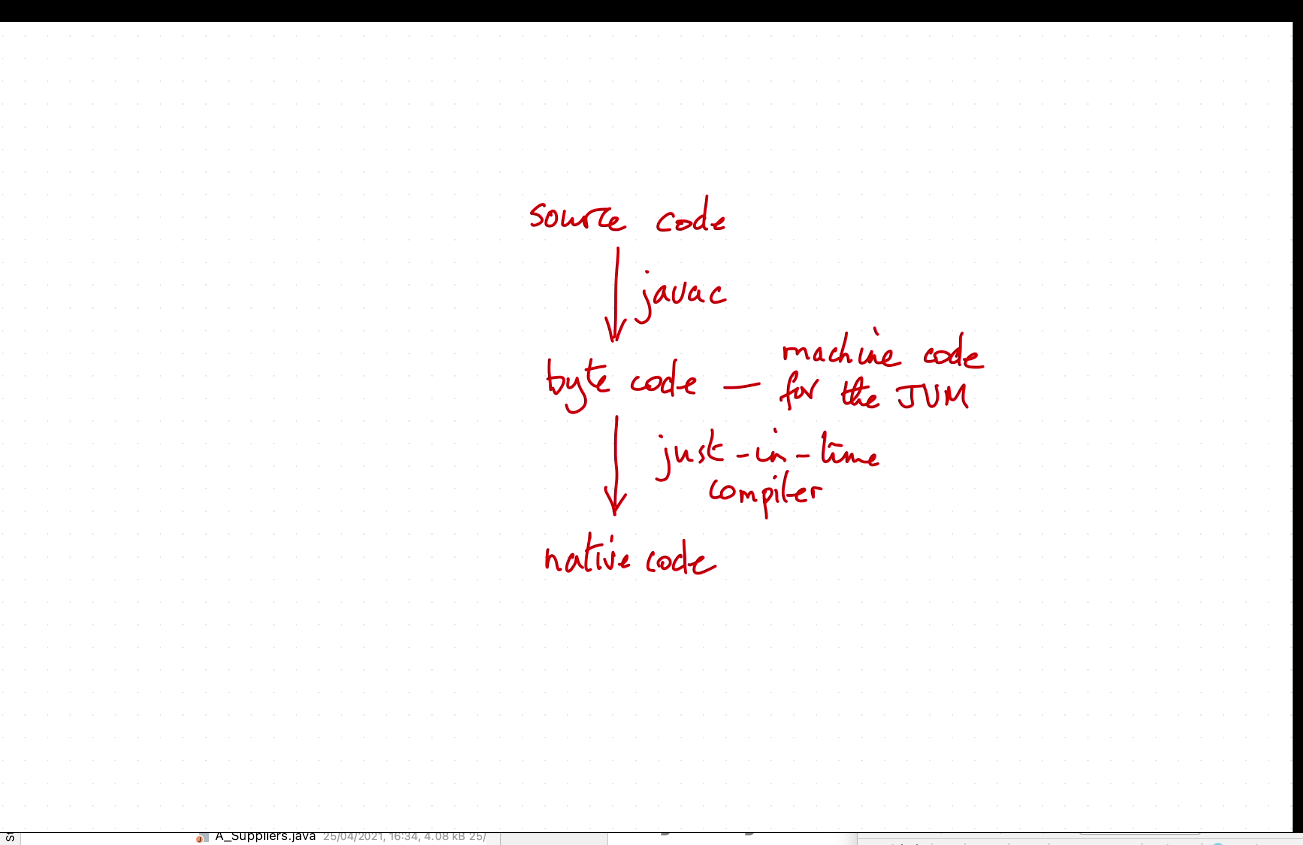 source code
javac
byte code — machine code
for the JVM
just-in-time
compiler
native code
A_Suppliers.java 25/04/2021, 16:34, 4.08 kB 25/